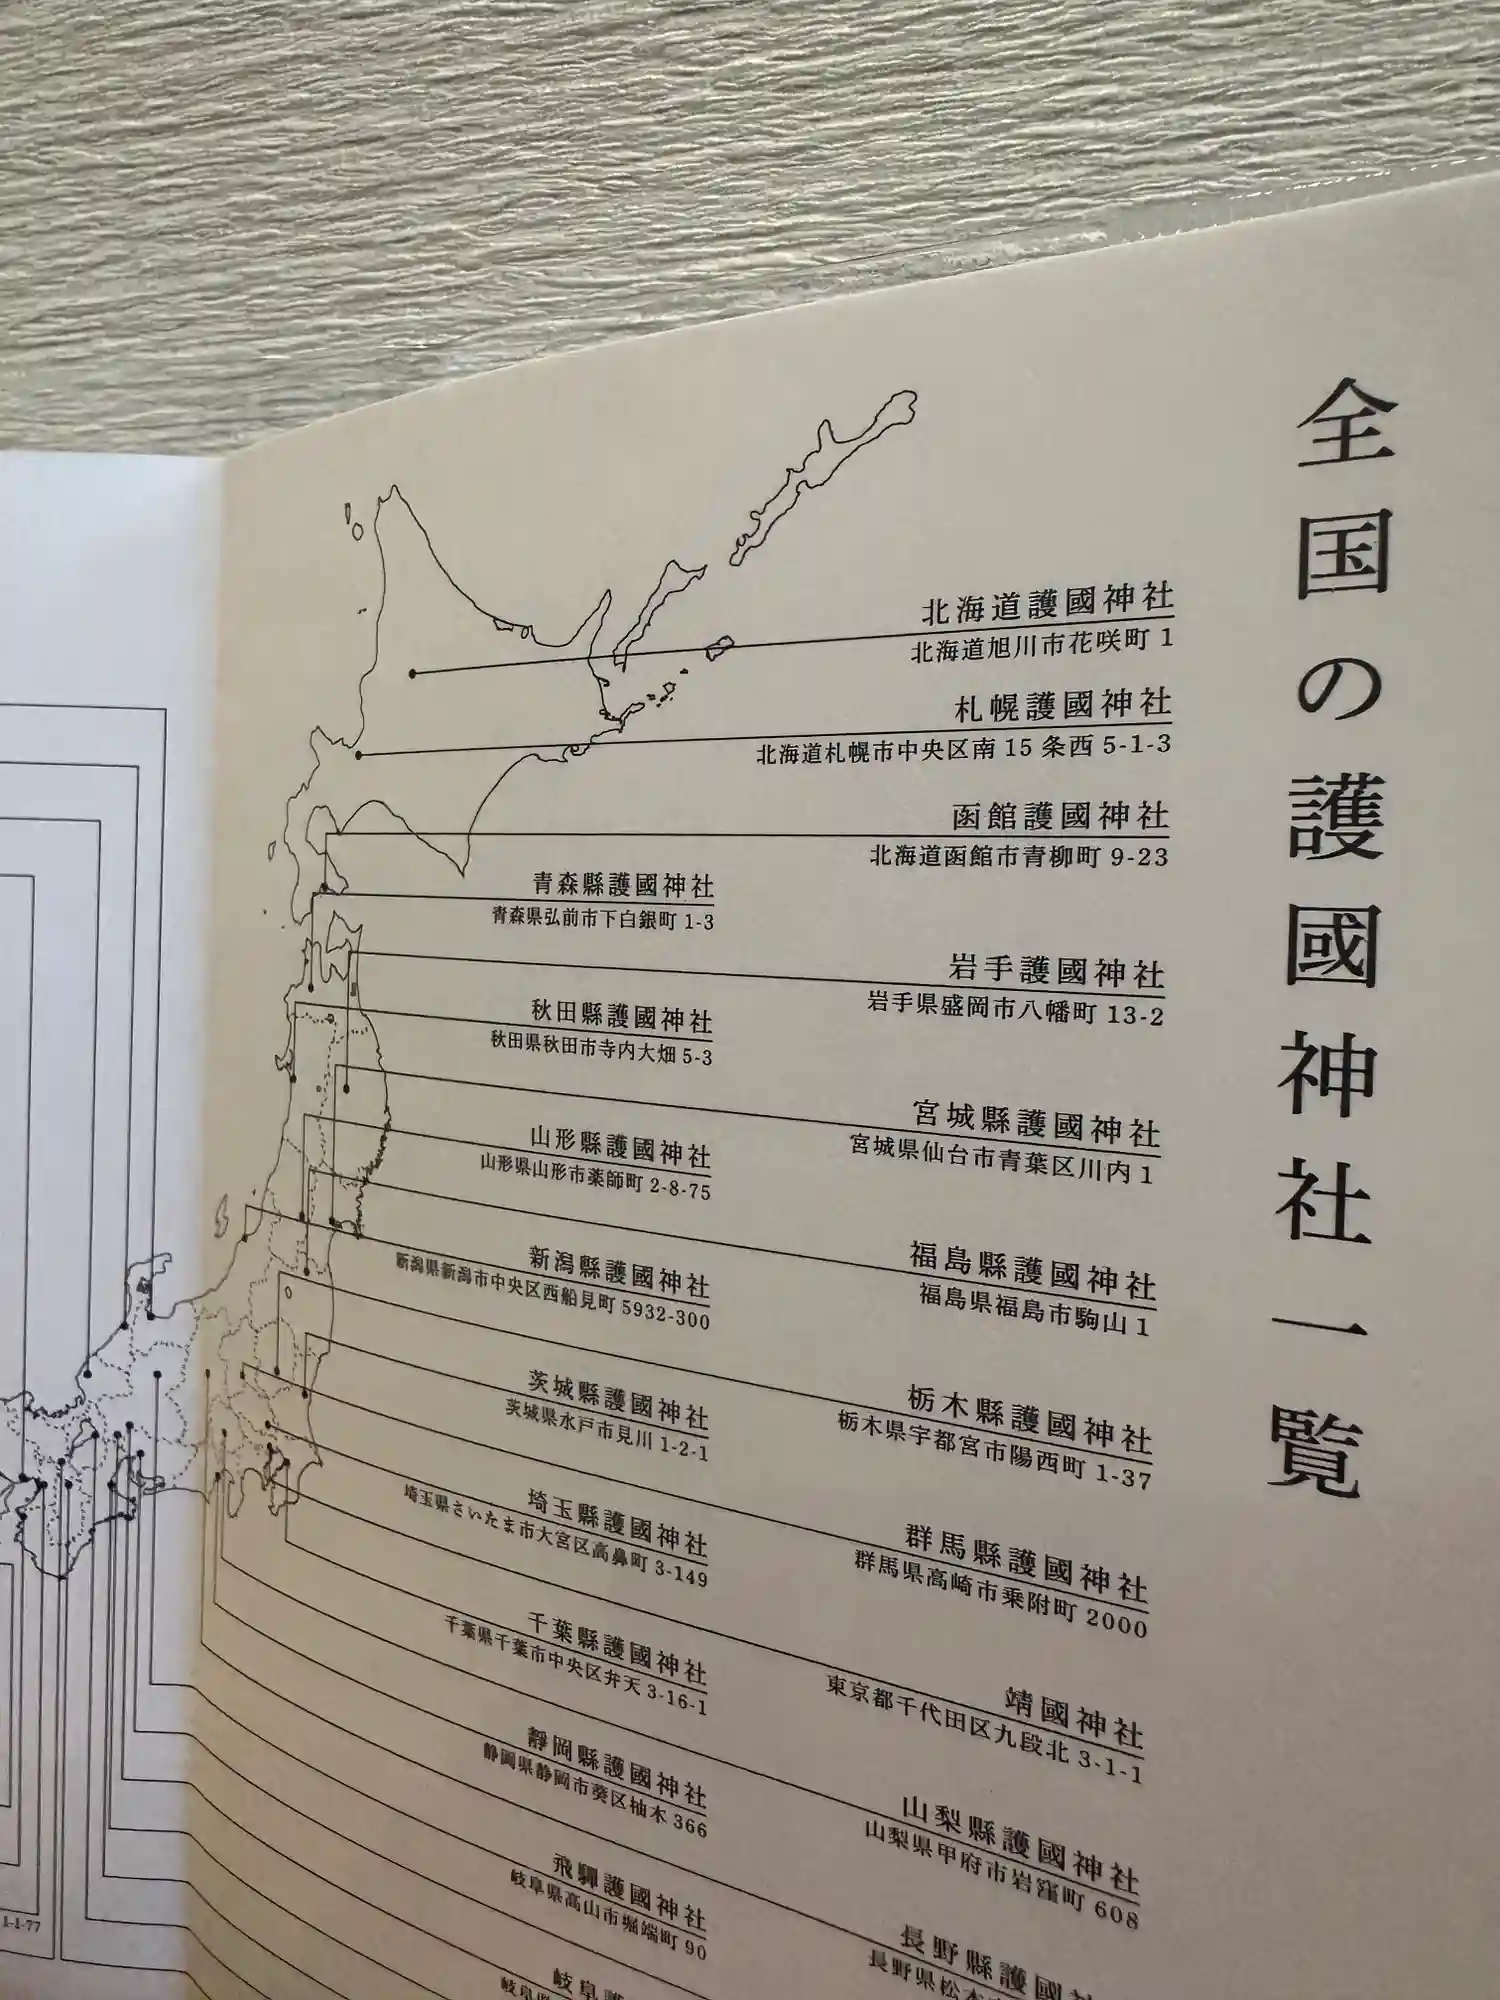 全国の護國神社一覧
北海道護國神社
北海道旭川市花咲町 1
札幌護國神社
北海道札幌市中央区南 15 条西 5-1-3
函館護國神社
北海道函館市青柳町 9-23
青森縣護國神社
青森県弘前市下白銀町 1-3
岩手護國神社
岩手県盛岡市八幡町 13-2
秋田縣護國神社
秋田県秋田市寺内大畑 5-3
宮城縣護國神社
宮城県仙台市青葉区川内 1
山形縣護國神社
山形県山形市薬師町 2-8-75
福島縣護國神社
福島県福島市駒山 1
新潟縣護國神社
新潟県新潟市中央区西船見町 5932-300
栃木縣護國神社
栃木県宇都宮市陽西町 1-37
茨城縣護國神社
茨城県水戸市見川 1-2-1
群馬縣護國神社
群馬県高崎市乗附町 2000
埼玉縣護國神社
埼玉県さいたま市大宮区高鼻町 3-149
靖國神社
東京都千代田区九段北 3-1-1
千葉縣護國神社
千葉県千葉市中央区弁天 3-16-1
山梨縣護國神社
山梨県甲府市岩窪町 608
靜岡縣護國神社
静岡県静岡市葵区柚木 366
長野縣護國
長野県松本
飛驒護國神社
岐阜県高山市堀端町 90
岐阜護
岐阜県
1-1-77